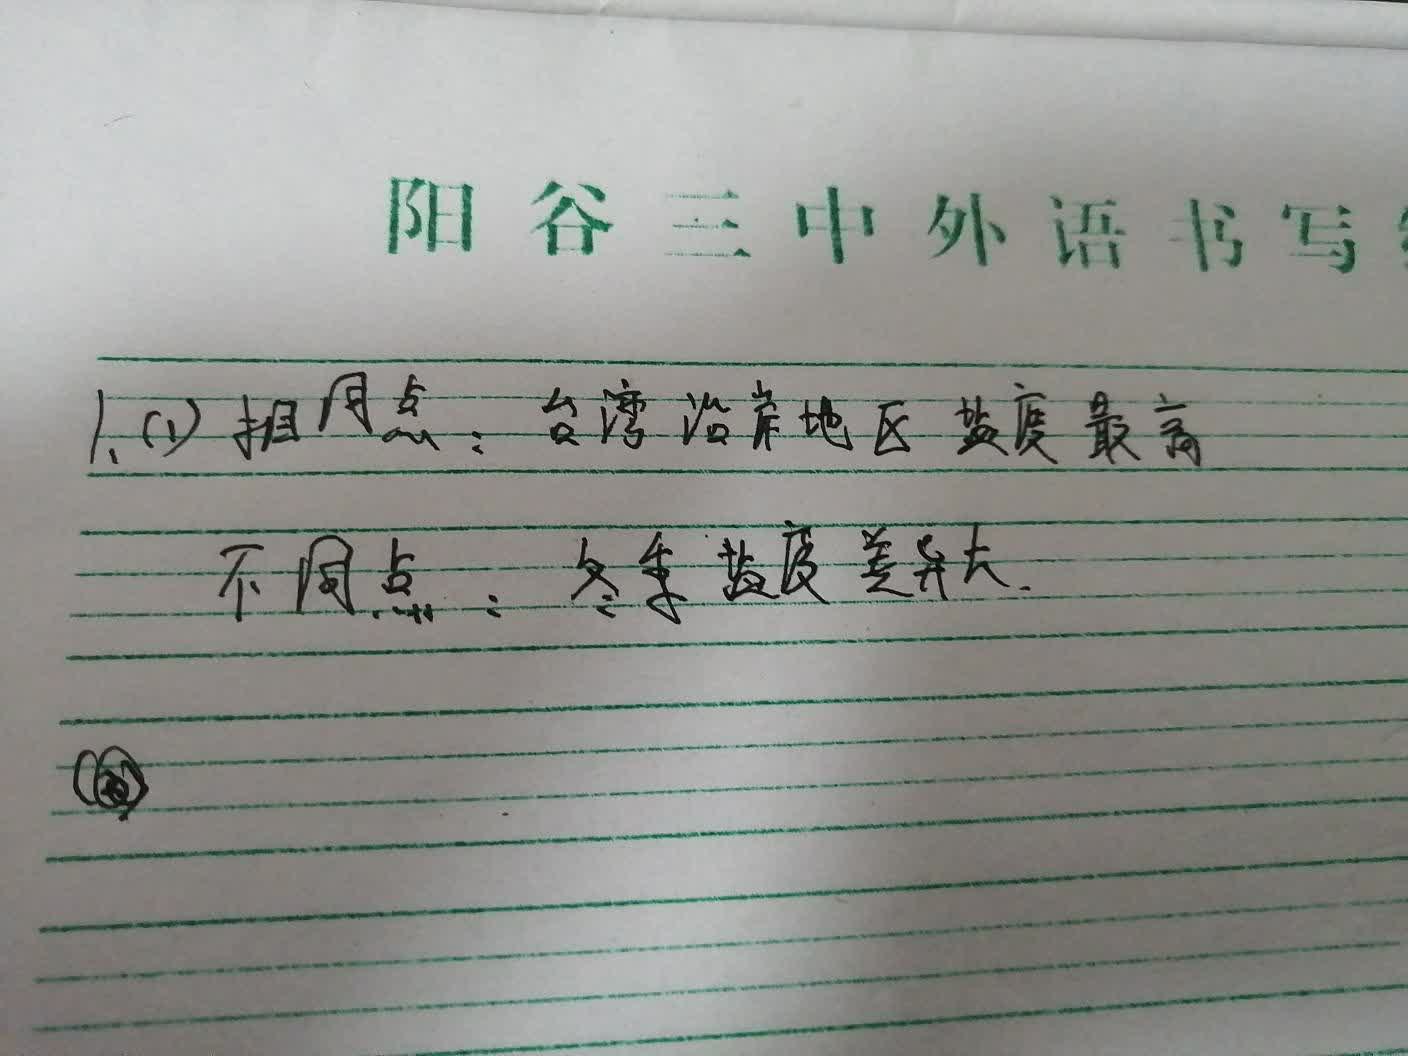 阳谷三中外语书写
1.(1)相同点:台湾沿岸地区盐度最高
不同点:冬季盐度差异大.